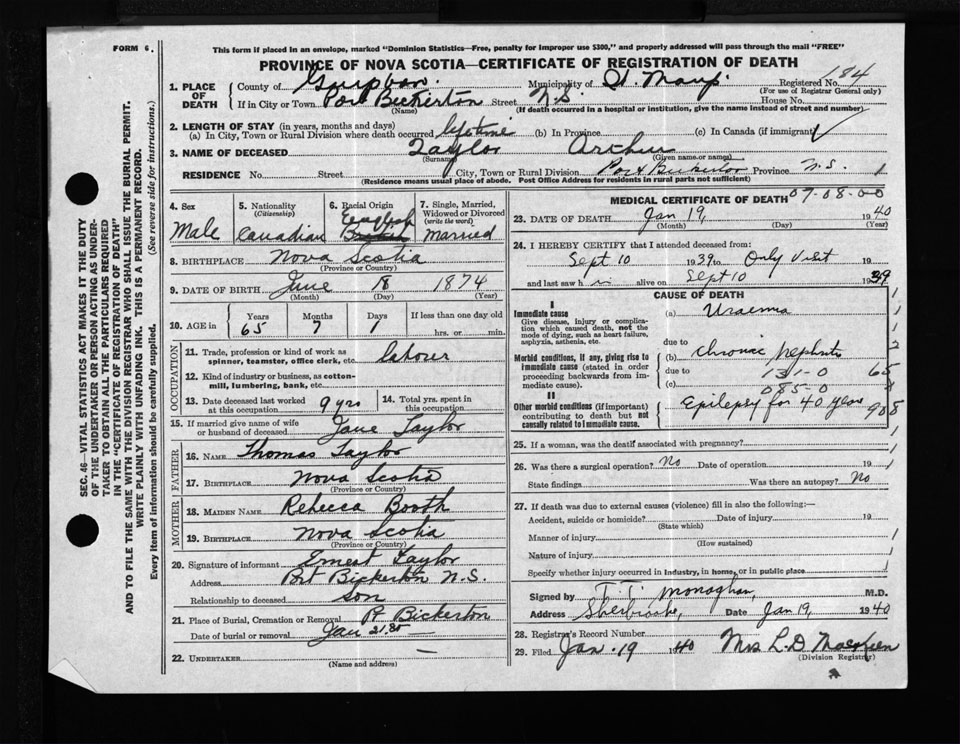 FORM 6.
This form if placed in an envelope, marked "Dominion Statistics—Free, penalty for improper use $300," and properly addressed will pass through the mail "FREE"
PROVINCE OF NOVA SCOTIA—CERTIFICATE OF REGISTRATION OF DEATH
184
1. PLACE OF DEATH
County of Guysboro. Municipality of St. Mary's Registered No.
(For use of Registrar General only)
If in City or Town Port Bickerton Street N.S. House No.
(Name) (If death occurred in a hospital or institution, give the name instead of street and number)
2. LENGTH OF STAY (in years, months and days)
(a) In City, Town or Rural Division where death occurred lifetime (b) In Province (c) In Canada (if immigrant) ✓
3. NAME OF DECEASED Taylor Archer
(Surname) (Given name or names)
RESIDENCE No. Street City, Town or Rural Division Port Bickerton Province N.S. 1
(Residence means usual place of abode. Post Office Address for residents in rural parts not sufficient)
SEC. 46—VITAL STATISTICS ACT MAKES IT THE DUTY
OF THE UNDERTAKER OR PERSON ACTING AS UNDER-
TAKER TO OBTAIN ALL THE PARTICULARS REQUIRED
IN THE "CERTIFICATE OF REGISTRATION OF DEATH"
AND TO FILE THE SAME WITH THE DIVISION REGISTRAR WHO SHALL ISSUE THE BURIAL PERMIT.
WRITE PLAINLY WITH UNFADING INK. THIS IS A PERMANENT RECORD.
Every item of information should be carefully supplied. (See reverse side for instructions.)
4. Sex
Male
5. Nationality
(Citizenship)
Canadian
6. Racial Origin
English
British
7. Single, Married,
Widowed or Divorced
(write the word)
Married
8. BIRTHPLACE Nova Scotia
(Province or Country)
9. DATE OF BIRTH June 18 1874
(Month) (Day) (Year)
10. AGE in
Years Months Days If less than one day old
65 7 1 hrs. or min.
OCCUPATION
11. Trade, profession or kind of work as
spinner, teamster, office clerk, etc. labourer
12. Kind of industry or business, as cotton-
mill, lumbering, bank, etc.
13. Date deceased last worked
at this occupation 9 yrs
14. Total yrs. spent in
this occupation
15. If married give name of wife
or husband of deceased Jane Taylor
FATHER
16. NAME Thomas Taylor
17. BIRTHPLACE Nova Scotia
(Province or Country)
MOTHER
18. MAIDEN NAME Rebecca Booth
19. BIRTHPLACE Nova Scotia
(Province or Country)
20. Signature of informant Ernest Taylor
Address Port Bickerton N.S.
Relationship to deceased Son
21. Place of Burial, Cremation or Removal P Bickerton
Date of burial or removal Jan 21
22. UNDERTAKER
(Name and address)
MEDICAL CERTIFICATE OF DEATH 07-08-00
23. DATE OF DEATH Jan 19, 1940
(Month) (Day) (Year)
24. I HEREBY CERTIFY that I attended deceased from:
Sept 10 1939 to Only Visit 19
and last saw h im alive on Sept 10 1939
CAUSE OF DEATH
I
Immediate cause
Give disease, injury or compli-
cation which caused death, not the
mode of dying, such as heart failure,
asphyxia, asthenia, etc.
(a) Uraemia
due to
Morbid conditions, if any, giving rise to
immediate cause (stated in order
proceeding backwards from im-
mediate cause).
(b) Chronic Nephritis
due to 131-0 65
(c) 085-0
II
Other morbid conditions (if important)
contributing to death but not
causally related to immediate cause.
Epilepsy for 40 years
25. If a woman, was the death associated with pregnancy?
26. Was there a surgical operation? No Date of operation 19
State findings Was there an autopsy? No
27. If death was due to external causes (violence) fill in also the following:—
Accident, suicide or homicide? Date of injury 19
(State which)
Manner of injury
(How sustained)
Nature of injury
Specify whether injury occurred in industry, in home, or in public place
Signed by T. T. Monaghan, M.D.
Address Sherbrooke, Date Jan 19, 1940
28. Registrar's Record Number
29. Filed Jan. 19 1940 Mrs L. D.
(Division Registrar)